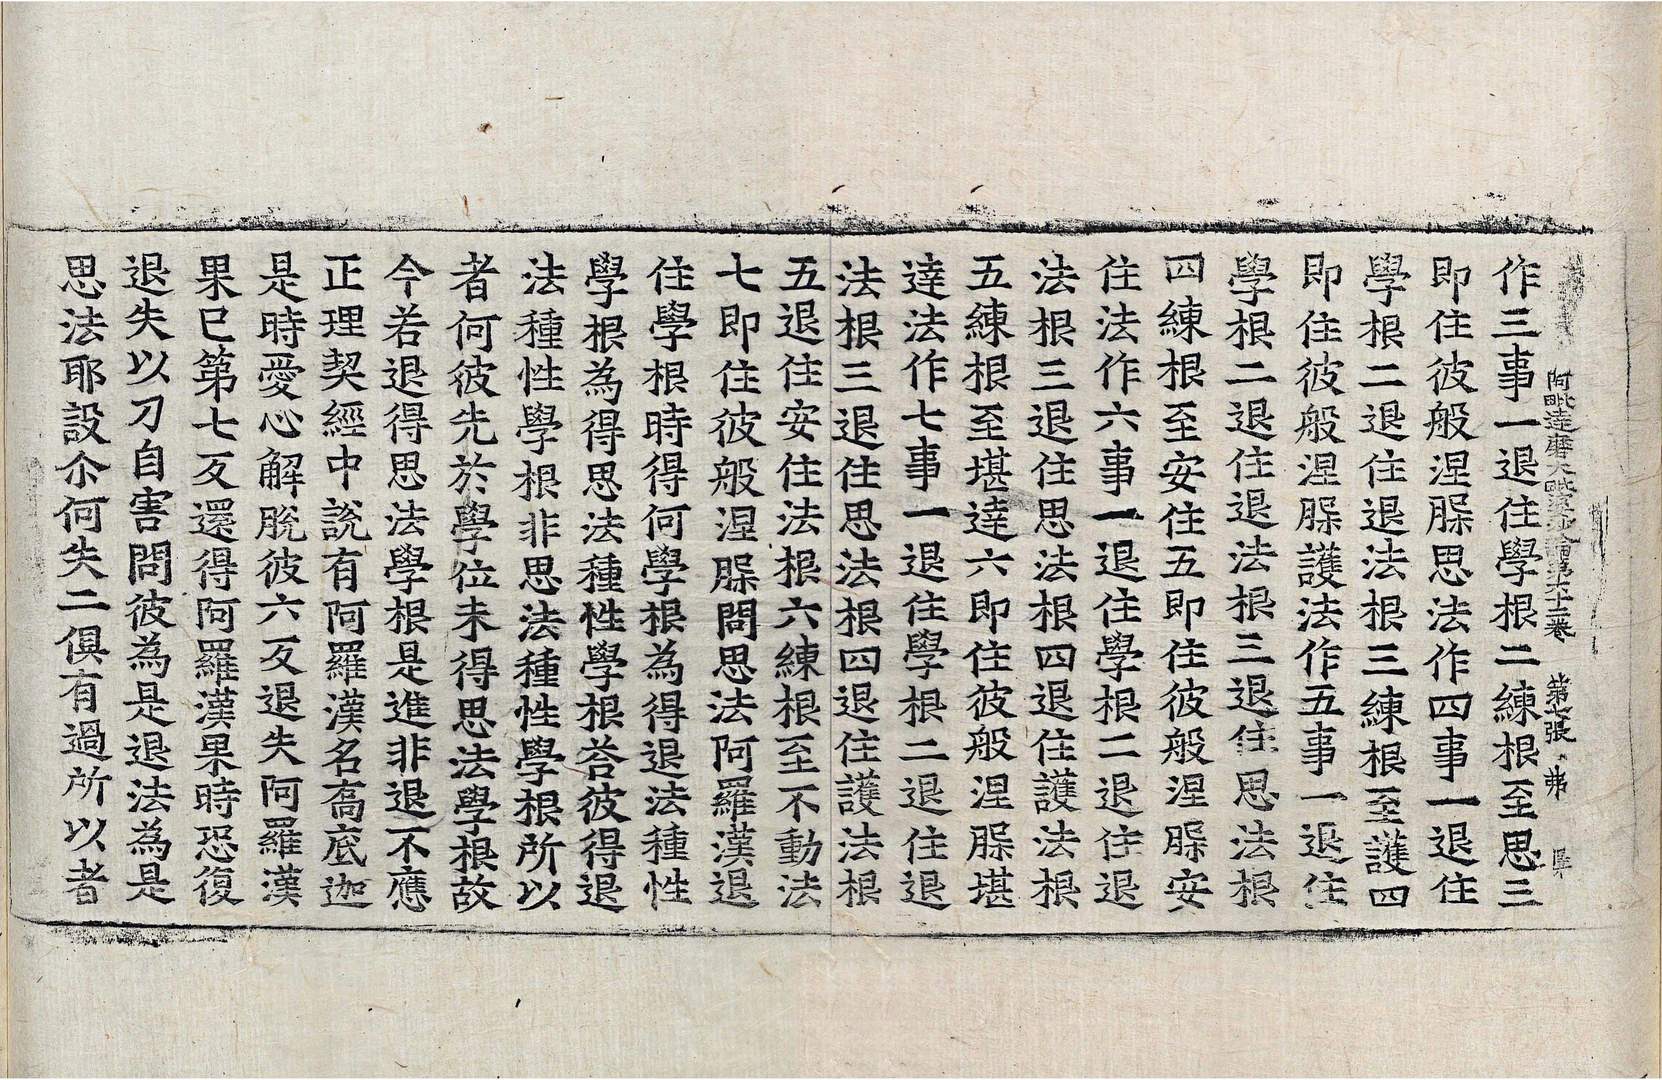 阿毗達磨大毗婆沙論第六十二卷　第七張　弗
作三事一退住學根二練根至思三
即住彼般涅槃思法作四事一退住
學根二退住退法根三練根至護四
即住彼般涅槃護法作五事一退住
學根二退住退法根三退住思法根
四練根至安住五即住彼般涅槃安
住法作六事一退住學根二退住退
法根三退住思法根四退住護法根
五練根至堪達六即住彼般涅槃堪
達法作七事一退住學根二退住退
法根三退住思法根四退住護法根
五退住安住法根六練根至不動法
七即住彼般涅槃問思法阿羅漢退
住學根時得何學根為得退法種性
學根為得思法種性學根荅彼得退
法種性學根非思法種性學根所以
者何彼先於學位未得思法學根故
今若退得思法學根是進非退不應
正理契經中說有阿羅漢名喬底迦
是時愛心解脫彼六反退失阿羅漢
果已第七反還得阿羅漢果時恐復
退失以刀自害問彼為是退法為是
思法耶設尒何失二俱有過所以者